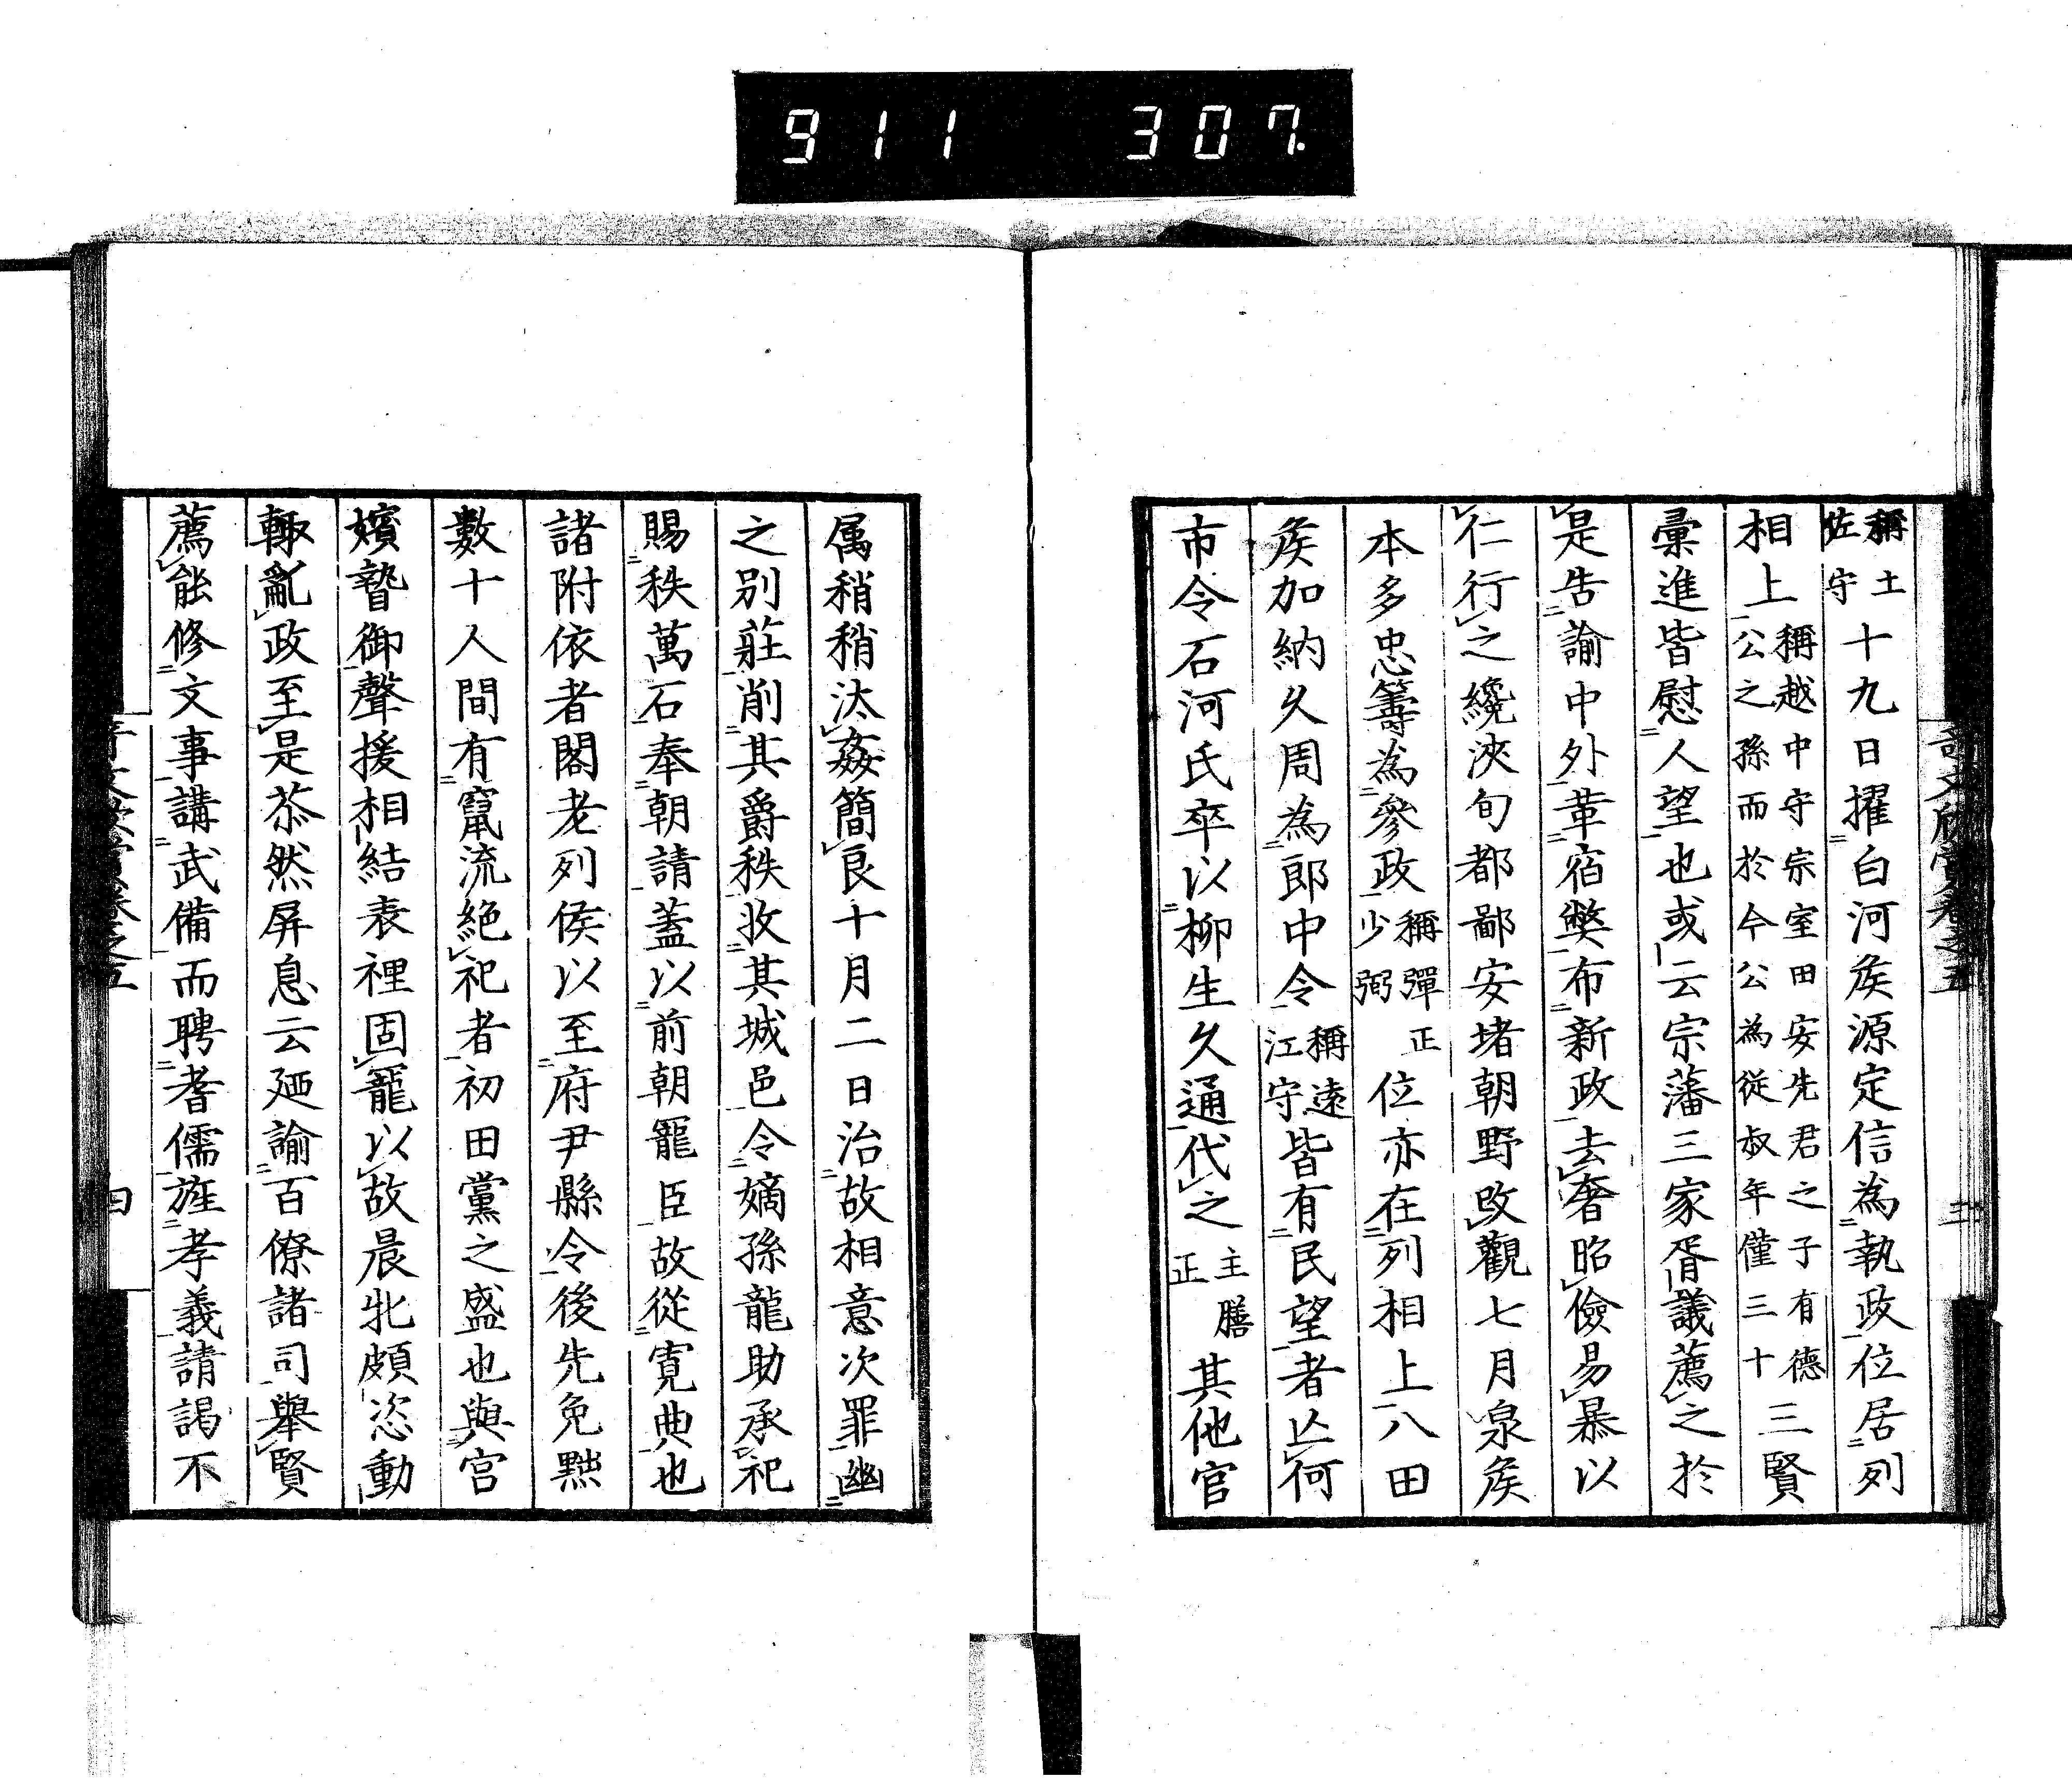 911 307.
稱土佐守十九日擢白河矦源定信為執政位居列
相上稱越中守宗室田安先君之子有德公之孫而於今公為從叔年僅三十三賢
彙進皆慰人望也或云宗藩三家胥議薦之於
是告諭中外革宿弊布新政去奢昭儉易暴以
仁行之纔浹旬都鄙安堵朝野改觀七月泉矦
本多忠籌為參政稱彈正少弼位亦在列相上八田
矦加納久周為郎中令稱遠江守皆有民望者亾何
市令石河氏卒以柳生久通代之主膳正其他官
属稍稍汰姦簡良十月二日治故相意次罪幽
之別莊削其爵秩收其城邑令嫡孫龍助承祀
賜秩萬石奉朝請蓋以前朝寵臣故從寬典也
諸附依者閣老列侯以至府尹縣令後先免黜
數十人間有竄流絕祀者初田黨之盛也與宫
嬪暬御聲援相結表裡固寵以故晨牝頗恣動
輙亂政至是恭然屏息云廼諭百僚諸司舉賢
薦能修文事講武備而聘耆儒旌孝義請謁不
四